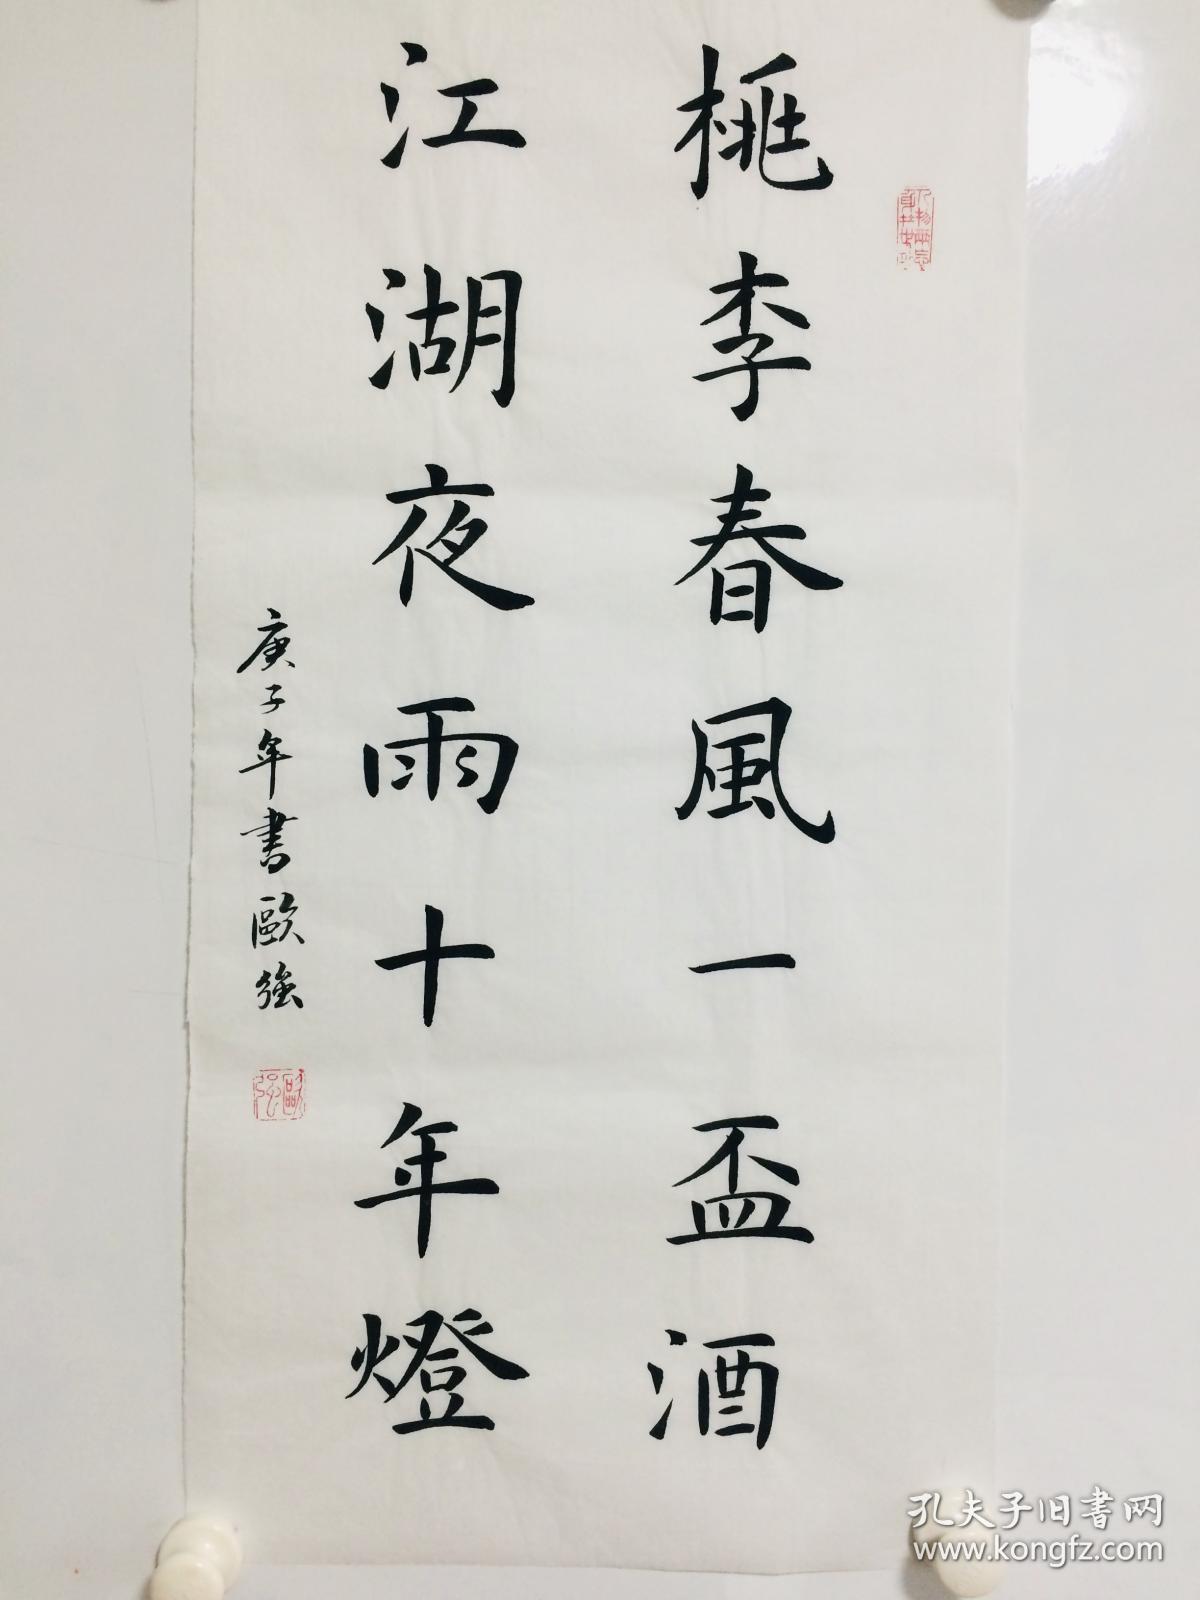 桃李春風一盃酒
江湖夜雨十年燈
庚子年書歐強
孔夫子旧书网
www.kongfz.com